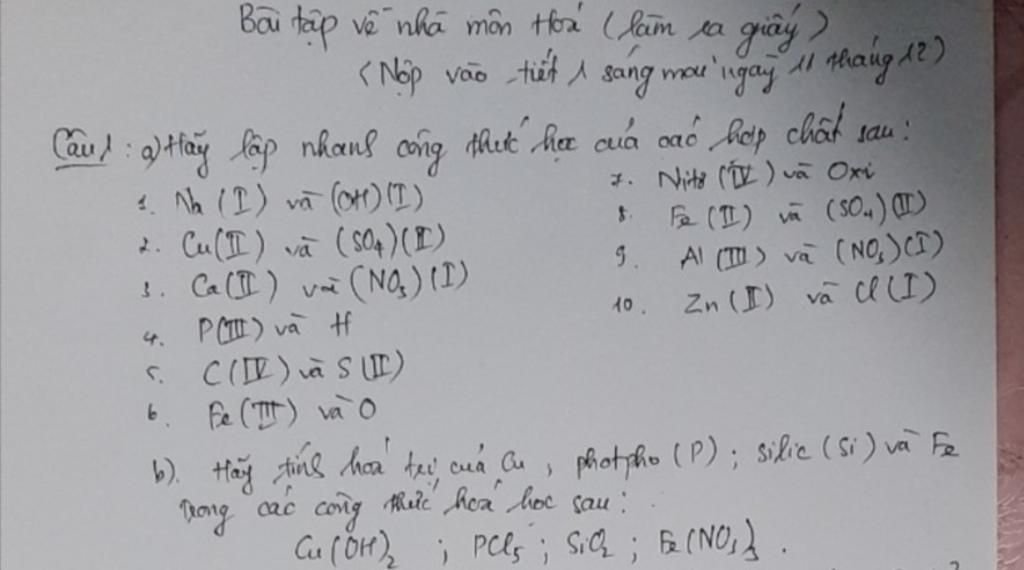 Bài tập về nhà môn Hoá (làm ra giấy)
(Nộp vào tiết 1 sáng mai ngày 11 tháng 12)
Câu 1: a) Hãy lập nhanh công thức học của các hợp chất sau:
1. Na (I) và (OH) (I)
2. Cu(II) và (SO4) (II)
3. Ca(II) và (NO3) (I)
4. P(III) và H
5. C(IV) và S(II)
6. Fe(III) và O
7. Nitơ (IV) và Oxi
8. Fe (II) và (SO4) (II)
9. Al (III) và (NO3) (I)
10. Zn (II) và Cl (I)
b). Hãy tính hoá trị của Cu, photpho (P); silic (Si) và Fe
trong các công thức hoá học sau:
Cu(OH)2 ; PCl5 ; SiO2 ; Fe(NO3)3.